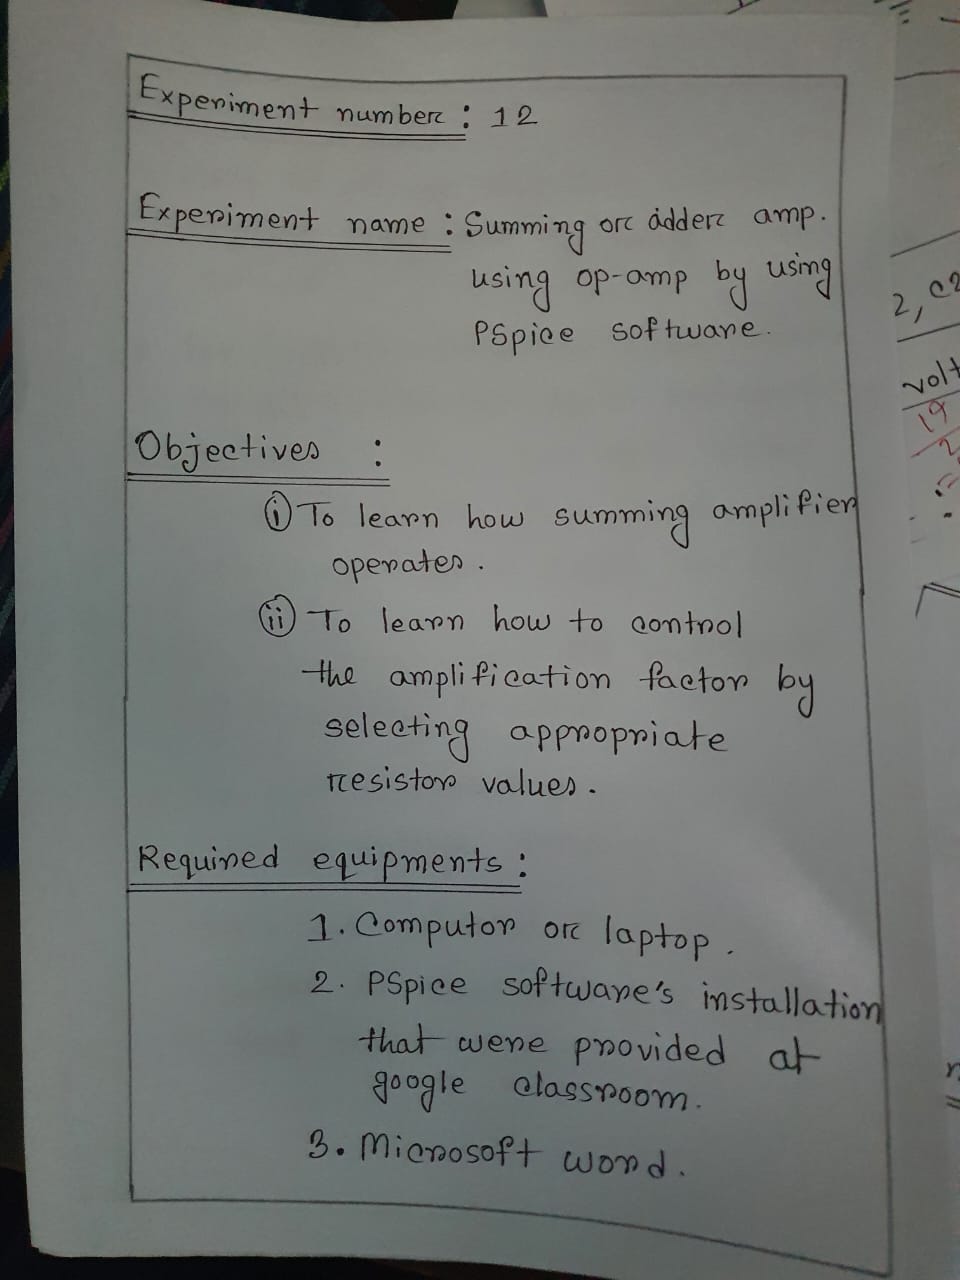 Experiment number : 12
Experiment name : Summing or adder amp.
using op-amp by using
PSpice software.
Objectives :
(i) To learn how summing amplifier
operates.
(ii) To learn how to control
the amplification factor by
selecting appropriate
resistor values.
Required equipments :
1. Computor or laptop.
2. PSpice software's installation
that were provided at
google classroom.
3. Microsoft word.
2, c2
volt
19
2